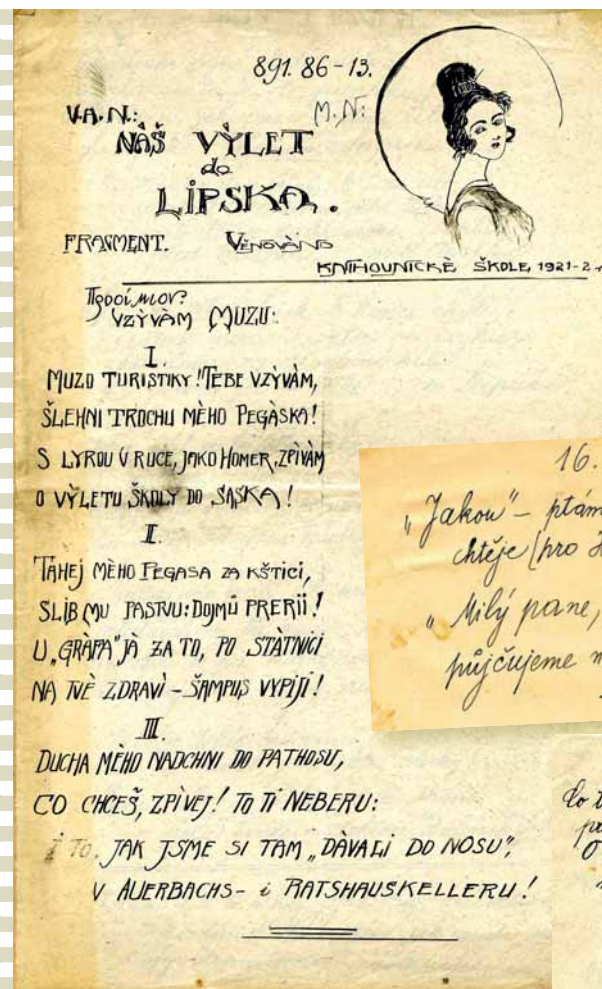 891.86-13.
V.A.N.: M.N:
NÁŠ VÝLET
do
LIPSKA.
FRAGMENT. VĚNOVÁNO
KNIHOVNICKÉ ŠKOLE, 1921-2.
VZÝVÁM MUZU:
I.
MUZO TURISTIKY! TEBE VZÝVÁM,
ŠLEHNI TROCHU MÉHO PEGÁSKA!
S LYROU V RUCE, JAKO HOMER, ZPÍVÁM
O VÝLETU ŠKOLY DO SASKA!
II.
TAHEJ MÉHO PEGASA ZA KŠTICI,
SLIB MU PASTVU: DOJMŮ PRERII!
U „GRÀPA" JÀ ZA TO, PO STÀTNICI
NA TVÉ ZDRAVÍ – ŠAMPUS VYPIJI!
III.
DUCHA MÉHO NADCHNI DO PATHOSU,
CO CHCEŠ, ZPÍVEJ! TO TI NEBERU:
I TO, JAK JSME SI TAM „DÁVALI DO NOSU",
V AUERBACHS- i RATSHAUSKELLERU!
16.
„Jakou" – ptám
chtěje (pro
„Milý pane,
půjčujeme